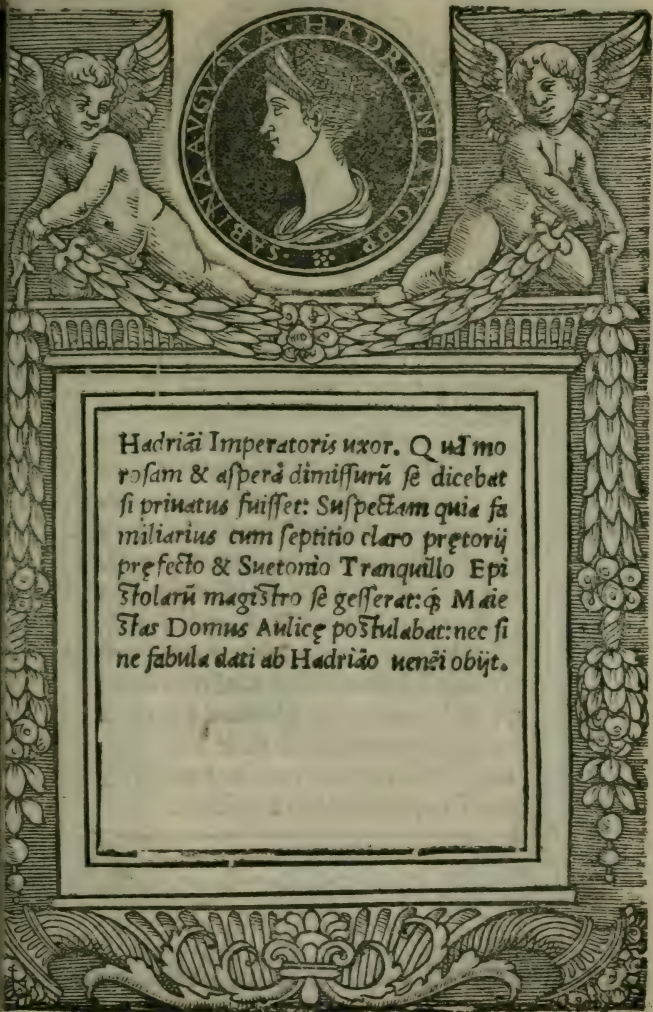 SABINA AVGVSTA · HADRIANI AVG PP ·
Hadriãi Imperatoris uxor. Q uã mo
rosam & asperã dimissurũ se dicebat
si priuatus fuisset: Suspectam quia fa
miliarius cum septitio claro prętorij
pręfecto & Suetonio Tranquillo Epi
stolarũ magistro se gesserat: ꝙ Maie
stas Domus Aulicę postulabat: nec si
ne fabula dati ab Hadrião uenẽi obijt.